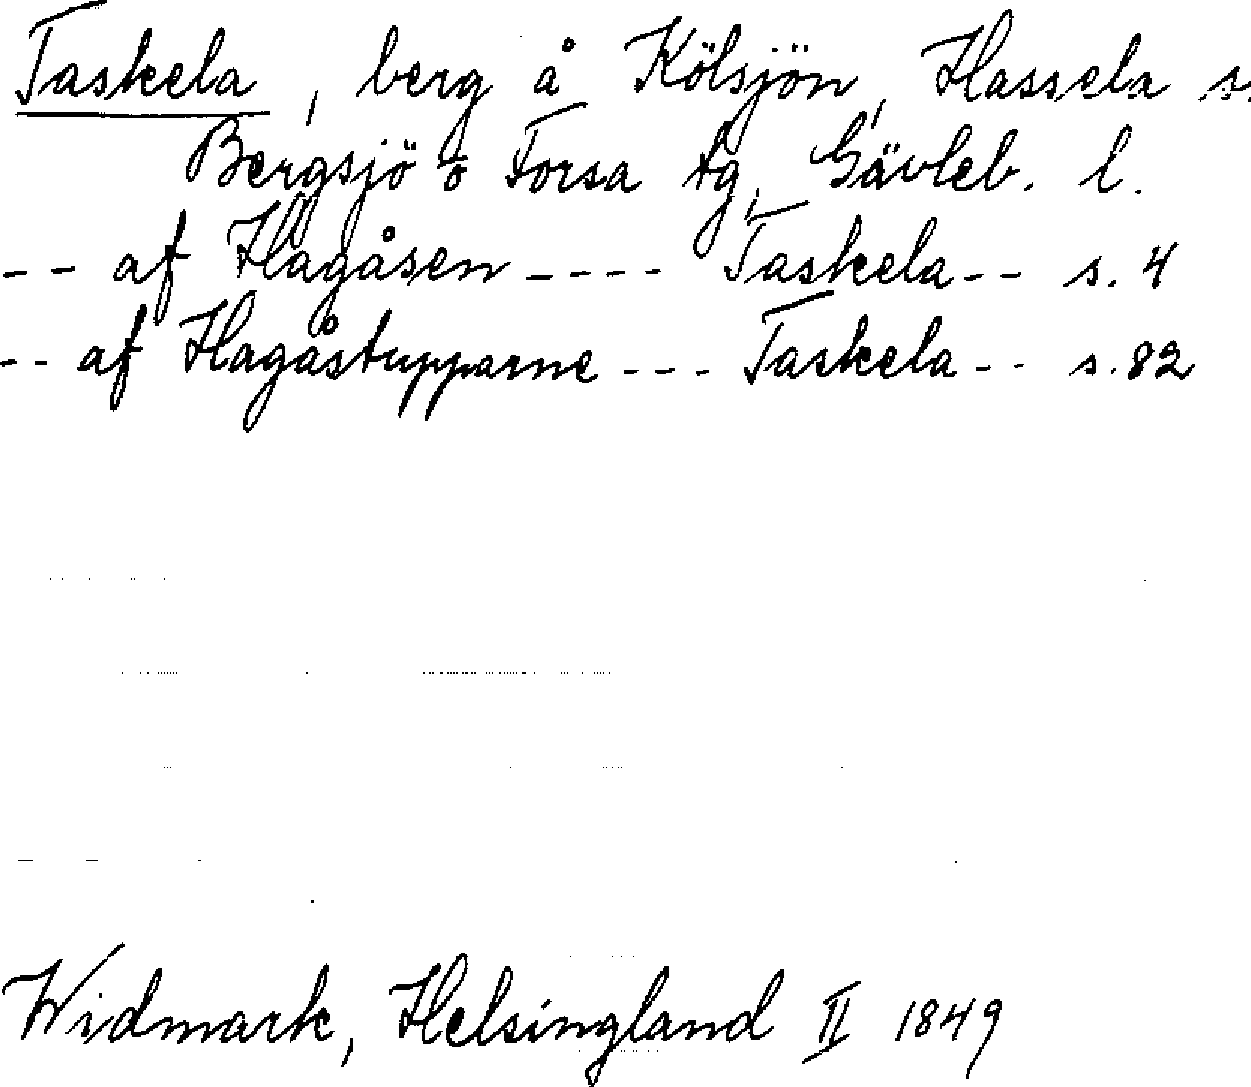 Taskela, berg å Kölsjön, Hassela s.
Bergsjö o Forsa tg, Gävleb. l.
-- af Hagåsen ---- Taskela -- s. 4
-- af Hagåstupparne --- Taskela -- s. 82
Widmark, Helsingland II 1849